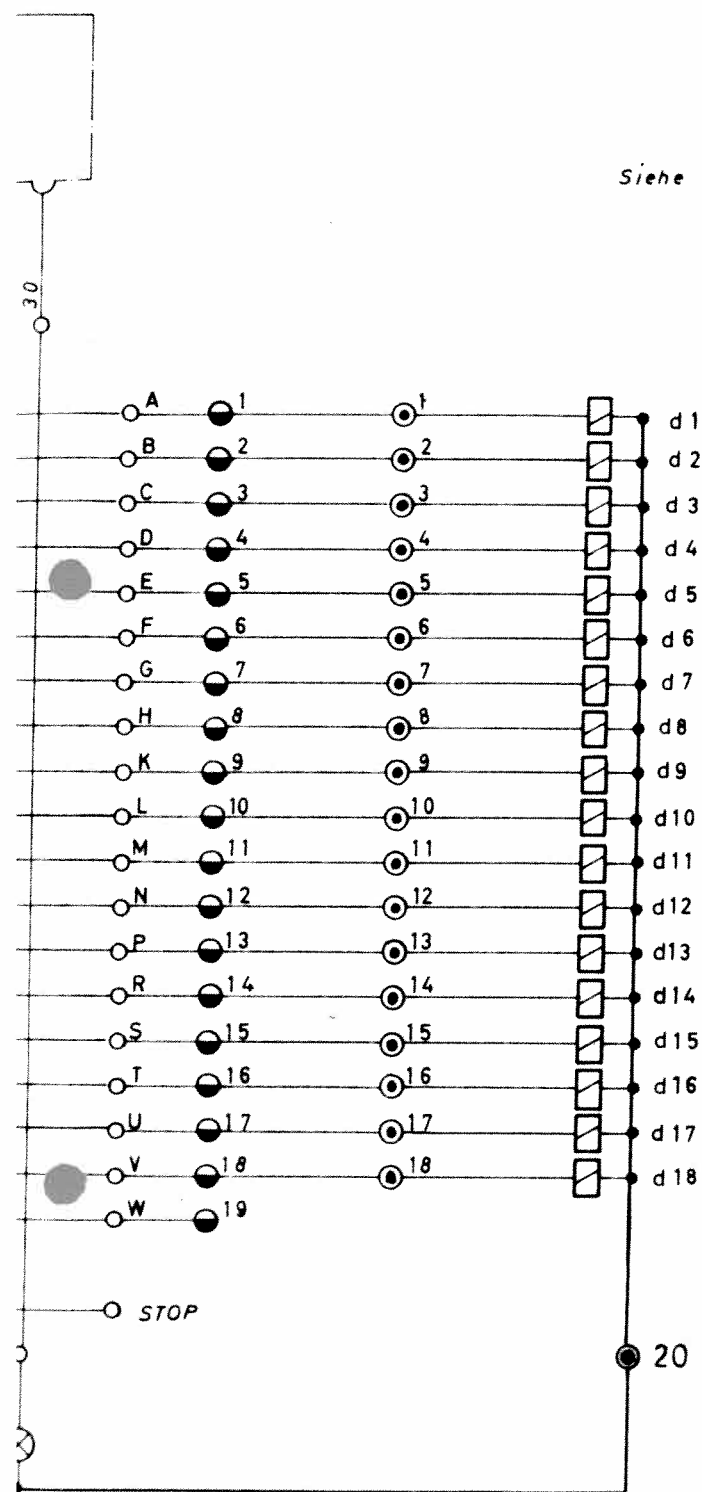 Siehe
30
A 1 1 d1
B 2 2 d2
C 3 3 d3
D 4 4 d4
E 5 5 d5
F 6 6 d6
G 7 7 d7
H 8 8 d8
K 9 9 d9
L 10 10 d10
M 11 11 d11
N 12 12 d12
P 13 13 d13
R 14 14 d14
S 15 15 d15
T 16 16 d16
U 17 17 d17
V 18 18 d18
W 19
STOP
20